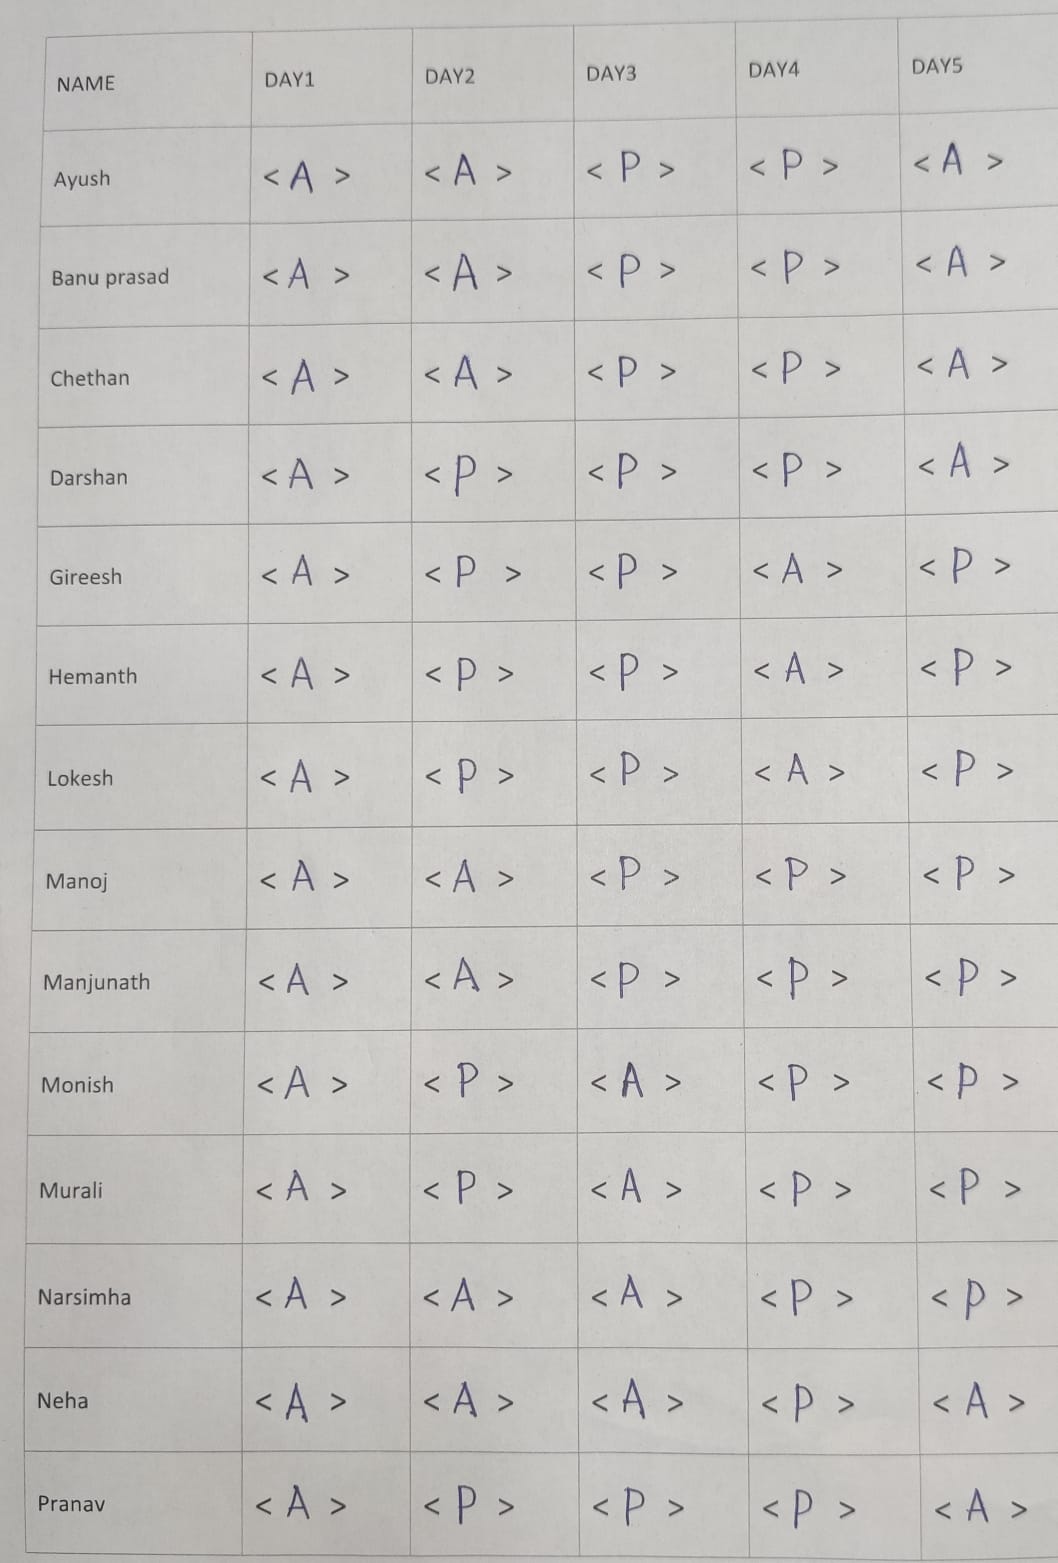 NAME DAY1 DAY2 DAY3 DAY4 DAY5
Ayush < A > < A > < P > < P > < A >
Banu prasad < A > < A > < P > < P > < A >
Chethan < A > < A > < P > < P > < A >
Darshan < A > < P > < P > < P > < A >
Gireesh < A > < P > < P > < A > < P >
Hemanth < A > < P > < P > < A > < P >
Lokesh < A > < P > < P > < A > < P >
Manoj < A > < A > < P > < P > < P >
Manjunath < A > < A > < P > < P > < P >
Monish < A > < P > < A > < P > < P >
Murali < A > < P > < A > < P > < P >
Narsimha < A > < A > < A > < P > < P >
Neha < A > < A > < A > < P > < A >
Pranav < A > < P > < P > < P > < A >